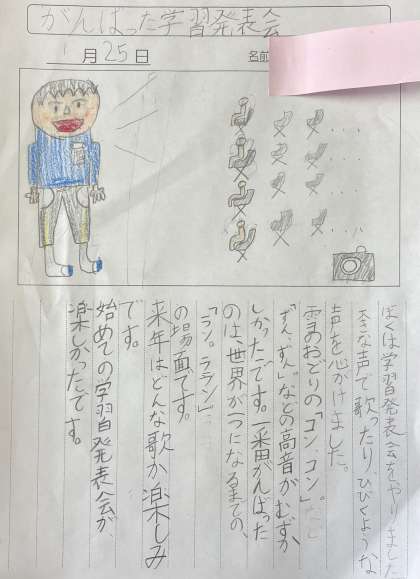 がんばった学習発表会
月25日
名前
ぼくは学習発表会をやりました
大きな声で歌ったり、ひびくような
声を心がけました。
雪のおどりの「コン、コン。」など
「ずん、ずん」などの高音がむずか
しかったです。一番がんばった
のは、世界が一つになるまでの、
「ラン。ララン」
の場面です。
来年はどんな歌か楽しみ
です。
始めての学習自発表会が、
楽しかったです。